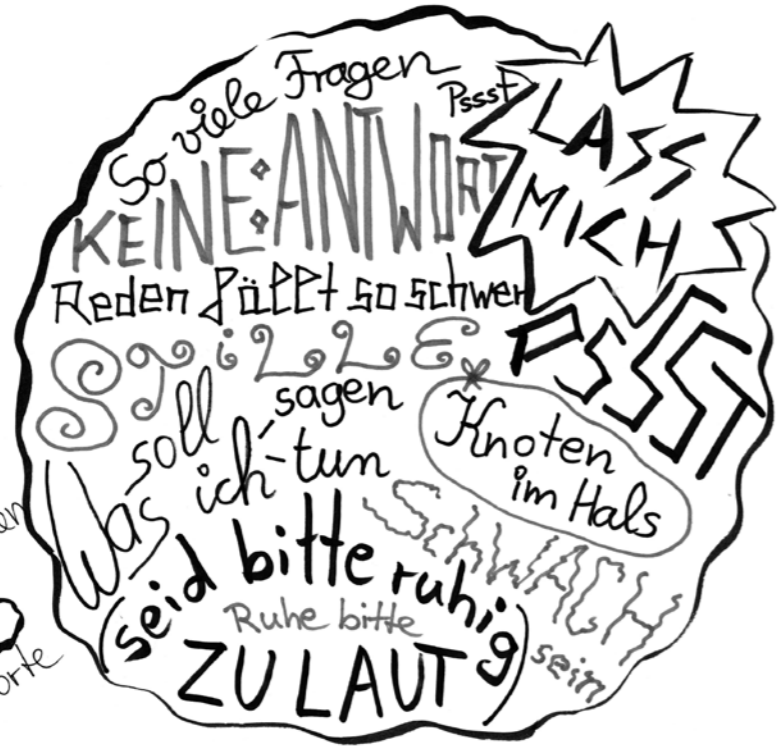 So viele Fragen
Pssst
LASS
MICH
KEINE:ANTWORT
Reden fällt so schwer
PSSST
STiLLE
Was soll ich sagen
tun
Knoten
im Hals
SCHWACH
sein
(seid bitte ruhig)
Ruhe bitte
ZU LAUT
en
orte